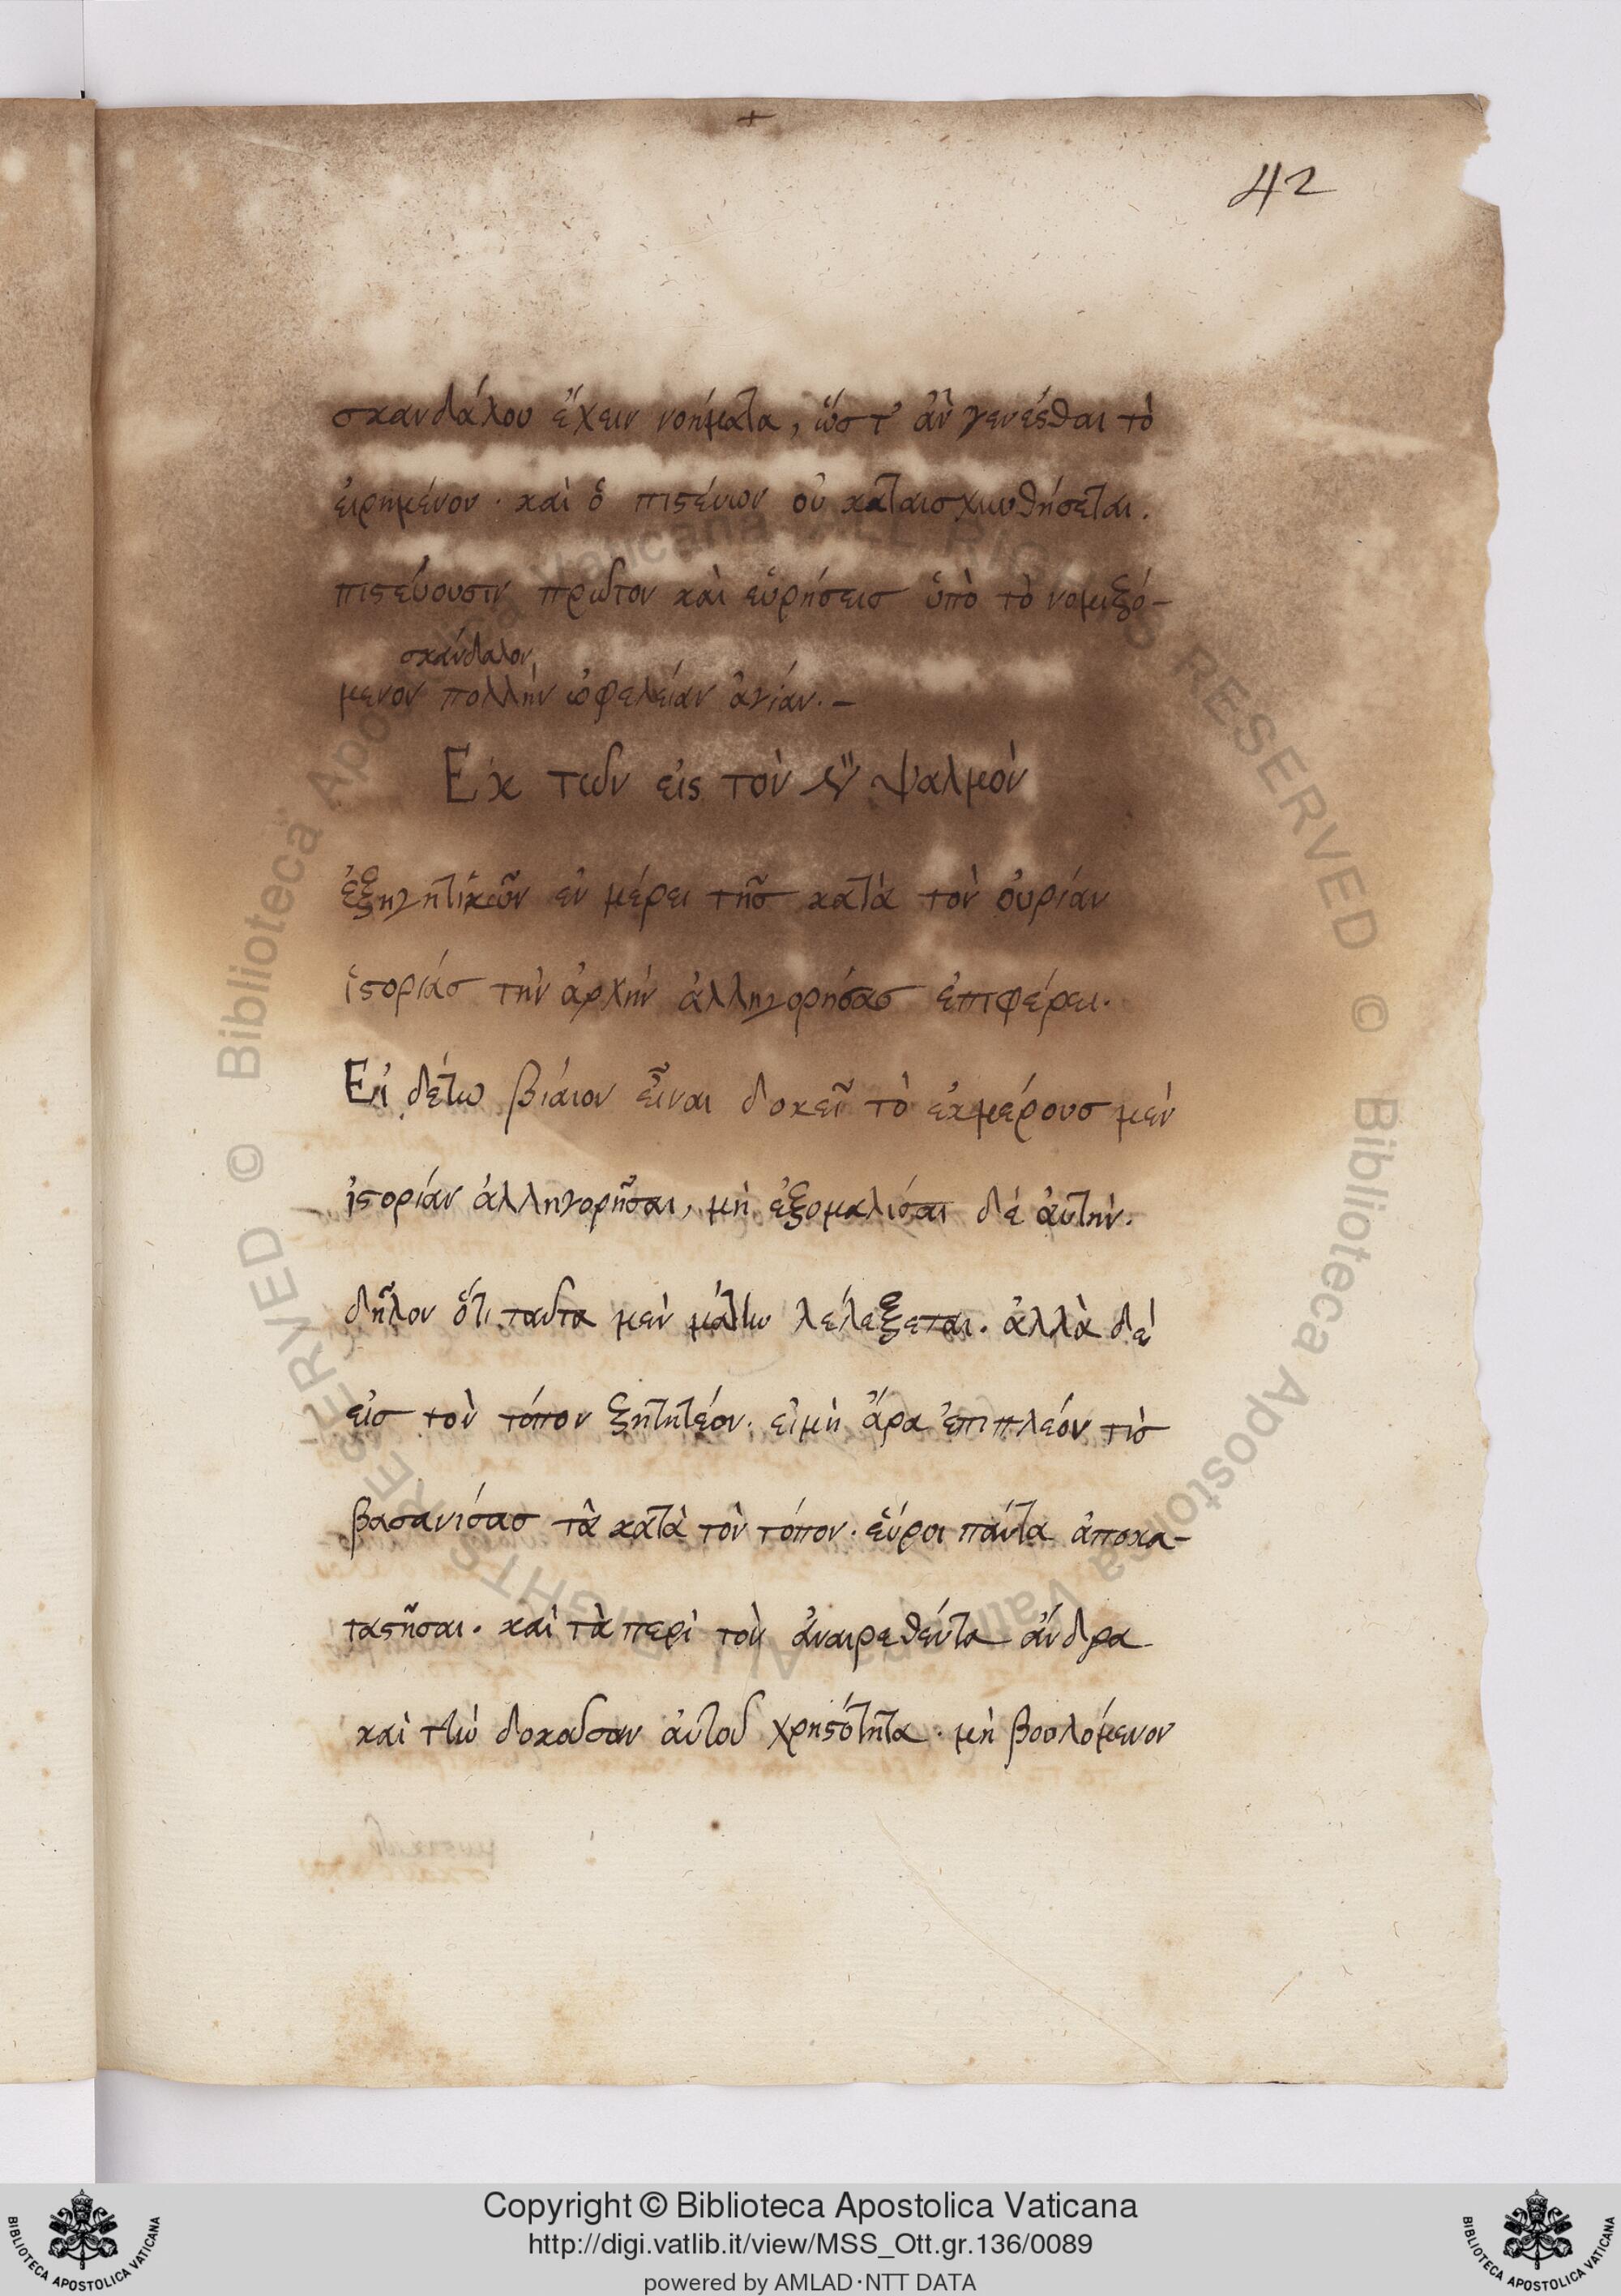 +
42
σκανδάλου ἔχειν νοήματα, ὥστ' ἂν γενέσθαι τὸ
εἰρημένον · καὶ ὁ πιστεύων οὐ καταισχυνθήσεται.
πιστεύουσιν πρῶτον καὶ εὑρήσεισ ὑπὸ τὸ νομιζό-
σκάνδαλον
μενον πολλὴν ὠφελείαν ἁγίαν. –
Ἐκ τῶν εἰς τὸν ν̅ ψαλμὸν
ἐξηγητικῶν ἐν μέρει τῆσ κατὰ τὸν οὐρίαν
ἱστορίασ τὴν ἀρχὴν ἀλληγορήσασ ἐπιφέρει.
Εἰ δέτω βίαιον εἶναι δοκεῖ τὸ ἐκμέρουσ μὲν
ἱστορίαν ἀλληγορῆσαι, μὴ ἐξομαλίσαι δὲ ἀυτὴν.
δῆλον ὅτι ταῦτα μὲν μάτην λελέξεται. ἀλλὰ δὲ
εἰσ τὸν τόπον ζητητέον. εἰμὴ ἄρα ἐπιπλέον τὶσ
βασανίσασ τὰ κατὰ τὸν τόπον. εὕροι πάντα ἀποκα-
ταστῆσαι. καὶ τὰ περὶ τὸν ἀναιρεθέντα ἄνδρα
καὶ τὴν δοκοῦσαν ἀυτοῦ χρηστότητα. μὴ βουλόμενον
Copyright © Biblioteca Apostolica Vaticana
http://digi.vatlib.it/view/MSS_Ott.gr.136/0089
powered by AMLAD·NTT DATA
BIBLIOTECA APOSTOLICA VATICANA
BIBLIOTECA APOSTOLICA VATICANA
© Biblioteca Apostolica Vaticana ALL RIGHTS RESERVED © Biblioteca Apostolica Vaticana ALL RIGHTS RESERVED